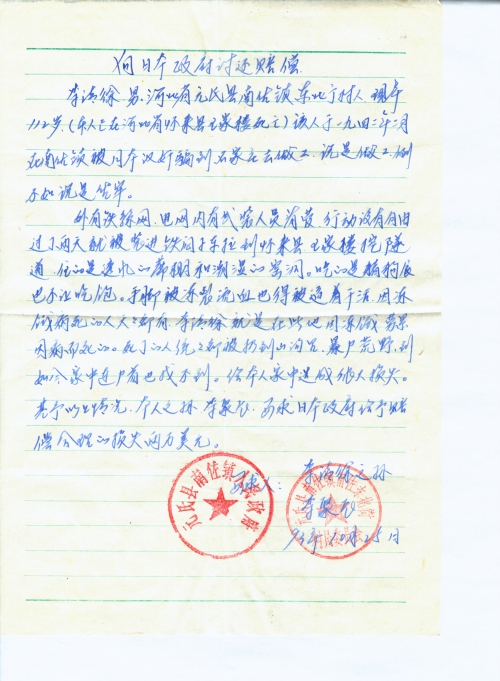 向日本政府讨还赔偿
李洛徐、男、河北省元氏县南佐镇东北亍村人、现年
112岁、(本人已在河北省怀来县王家楼死亡)该人于一九四三年二月
在南佐镇被日本汉奸骗到石家庄去做工、说是做工、倒
不如说是劳军。
外有铁絲网、电网内有武装人员消营、行动没有自由
过了两天就被赶进铁闷子车拉到怀来县王家楼挖隧
道、住的是透风的席棚和潮湿的窑洞。吃的是猪狗食
也不让吃饱。手脚被冻裂流血也得被逼着干活、因冻
饿病死的人天天都有、李洛徐就是在此地因冻饿劳累
因病而死的。死了的人统统都被扔到山沟里、暴尸荒野、到
如今家中连尸骨也找不到。给本人家中造成很大损失。
鉴于以上情况、本人之孙李聚 、要求日本政府给予赔
偿合理的损失两万美元。
要求人: 李洛徐之孙
李聚
93年10月25日
元氏县南佐镇人民政府